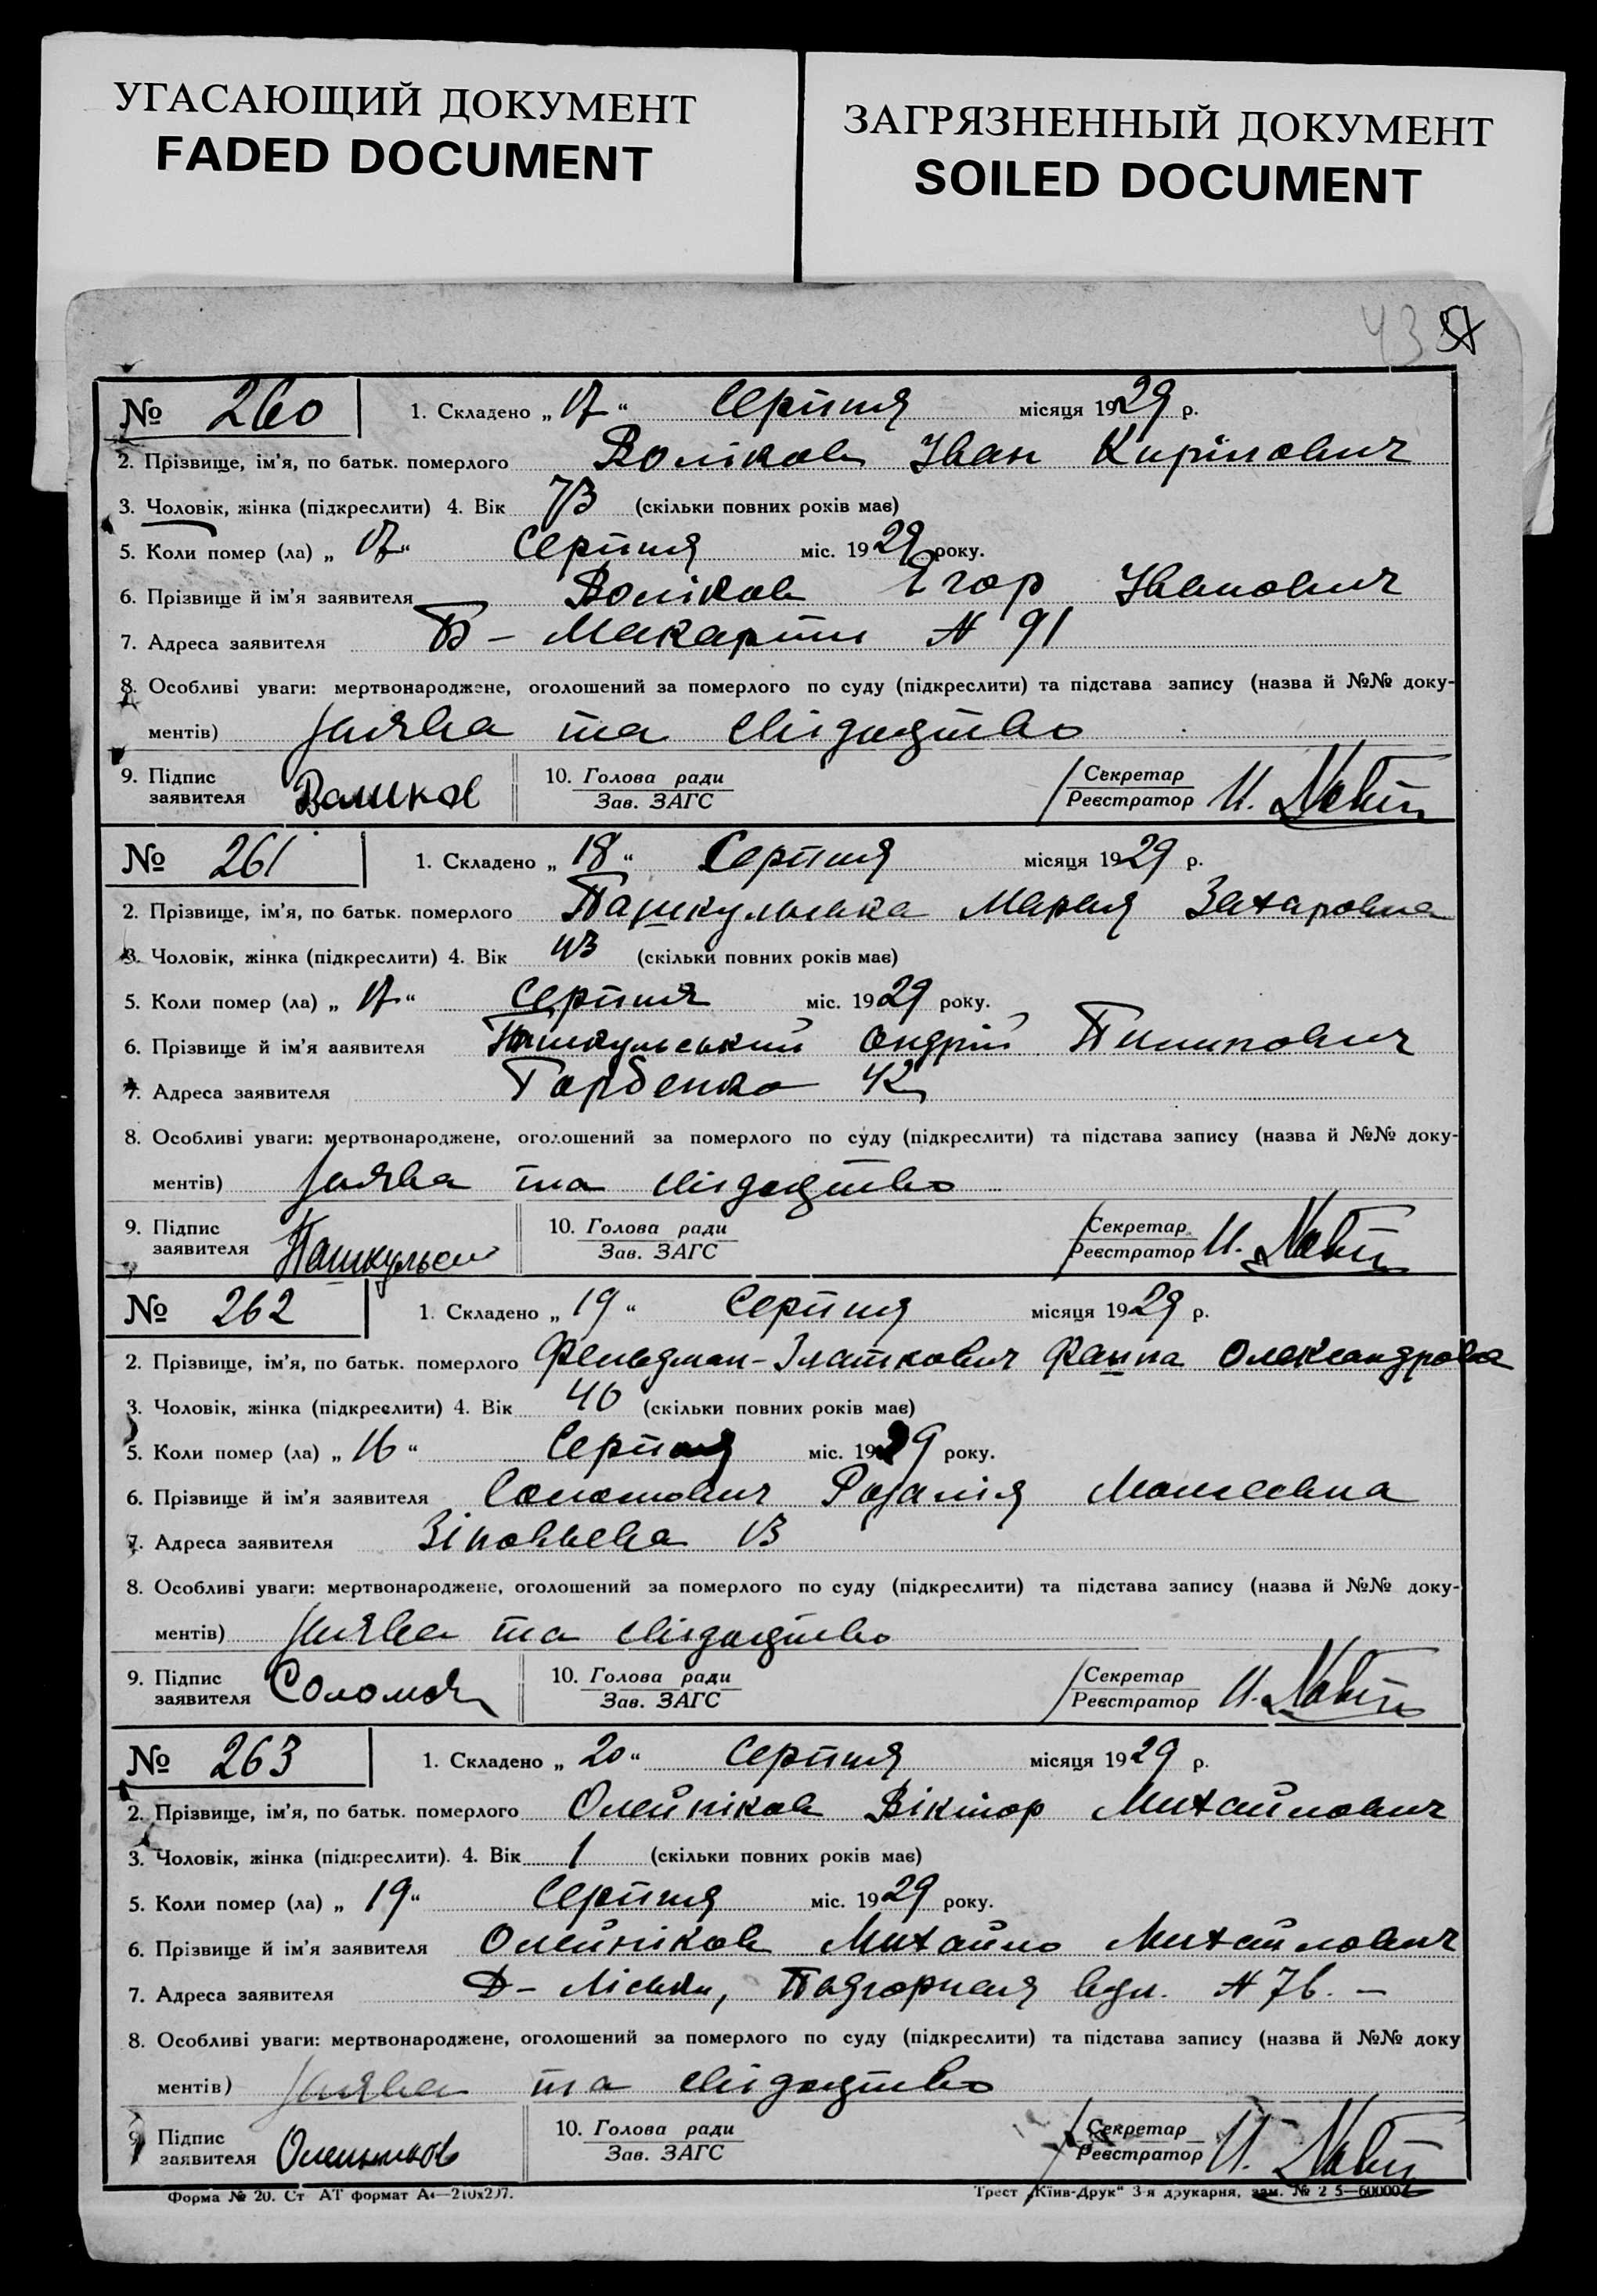 УГАСАЮЩИЙ ДОКУМЕНТ
FADED DOCUMENT
ЗАГРЯЗНЕННЫЙ ДОКУМЕНТ
SOILED DOCUMENT
43
№ 260 1. Складено „ 17 “ Серпня місяця 1929 р.
2. Прізвище, ім’я, по батьк. померлого Воліков Іван Кирілович
3. Чоловік, жінка (підкреслити) 4. Вік 73 (скільки повних років має)
5. Коли помер (ла) „ 17 “ Серпня міс. 1929 року.
6. Прізвище й ім’я заявителя Воліков Єгор Іванович
7. Адреса заявителя Б – Макарти № 91
8. Особливі уваги: мертвонароджене, оголошений за померлого по суду (підкреслити) та підстава запису (назва й №№ доку-
ментів) Заява та свідоцтво
9. Підпис заявителя Воликов 10. Голова ради Зав. ЗАГС Секретар Реєстратор И.
№ 261 1. Складено „ 18 “ Серпня місяця 1929 р.
2. Прізвище, ім’я, по батьк. померлого Пашкульська Мария Захаровна
3. Чоловік, жінка (підкреслити) 4. Вік 43 (скільки повних років має)
5. Коли помер (ла) „ 17 “ Серпня міс. 1929 року.
6. Прізвище й ім’я аявителя Пашкульський Андрій Пилипович
7. Адреса заявителя Горбенко 42
8. Особливі уваги: мертвонароджене, оголошений за померлого по суду (підкреслити) та підстава запису (назва й №№ доку-
ментів) Заява та свідоцтво
9. Підпис заявителя Пашкульск 10. Голова ради Зав. ЗАГС Секретар Реєстратор И.
№ 262 1. Складено „ 19 “ Серпня місяця 1929 р.
2. Прізвище, ім’я, по батьк. померлого Фельдман-Златкович Фанна Олександровна
3. Чоловік, жінка (підкреслити) 4. Вік 40 (скільки повних років має)
5. Коли помер (ла) „ 16 “ Серпня міс. 1929 року.
6. Прізвище й ім’я заявителя Соломович Розалія Моисеевна
7. Адреса заявителя Зіновьева 13
8. Особливі уваги: мертвонароджене, оголошений за померлого по суду (підкреслити) та підстава запису (назва й №№ доку-
ментів) Заява та свідоцтво
9. Підпис заявителя 10. Голова ради Зав. ЗАГС Секретар Реєстратор И.
№ 263 1. Складено „ 20 “ Серпня місяця 1929 р.
2. Прізвище, ім’я, по батьк. померлого Олейніков Віктор Михайлович
3. Чоловік, жінка (підкреслити). 4. Вік 1 (скільки повних років має)
5. Коли помер (ла) „ 19 “ Серпня міс. 1929 року.
6. Прізвище й ім’я заявителя Олейніков Михайло Михайлович
7. Адреса заявителя Д – Ліски, Подгорная вул. № 76. –
8. Особливі уваги: мертвонароджене, оголошений за померлого по суду (підкреслити) та підстава запису (назва й №№ доку
ментів) Заява та свідоцтво
9. Підпис заявителя Олейников 10. Голова ради Зав. ЗАГС Секретар Реєстратор И.
Форма № 20. Ст АТ формат А4—210х297. Трест „Київ-Друк“ 3-я друкарня, зам. №